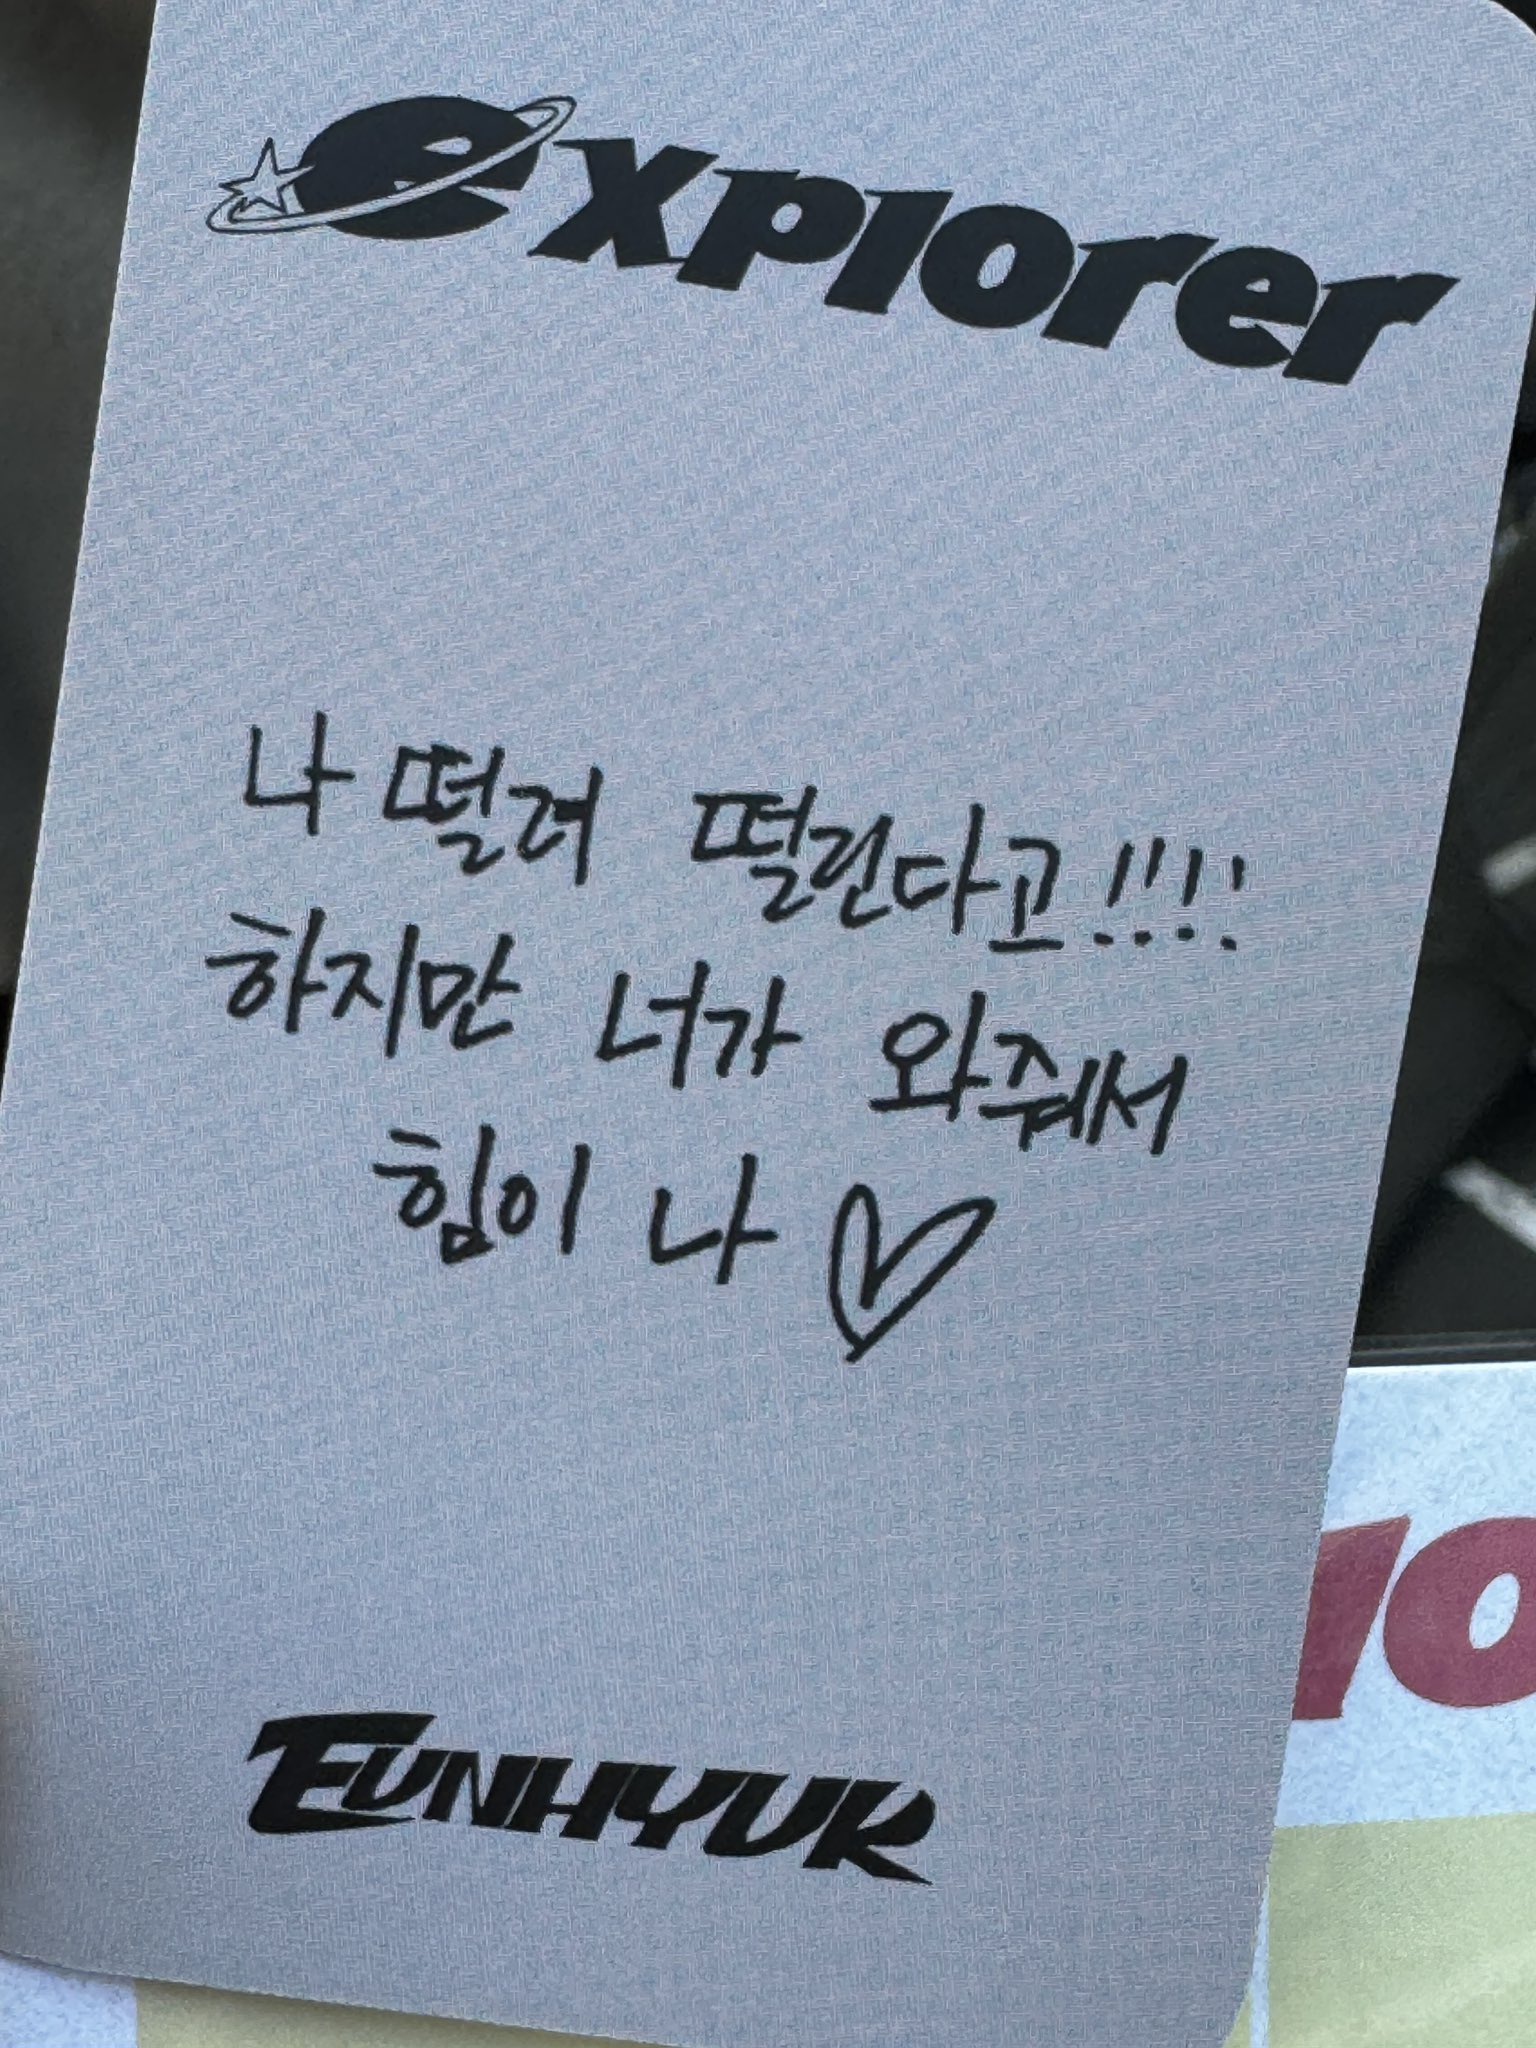 explorer
나 떨려 떨린다고!!!!
하지만 너가 와줘서
힘이 나 ♡
EUNHYUK